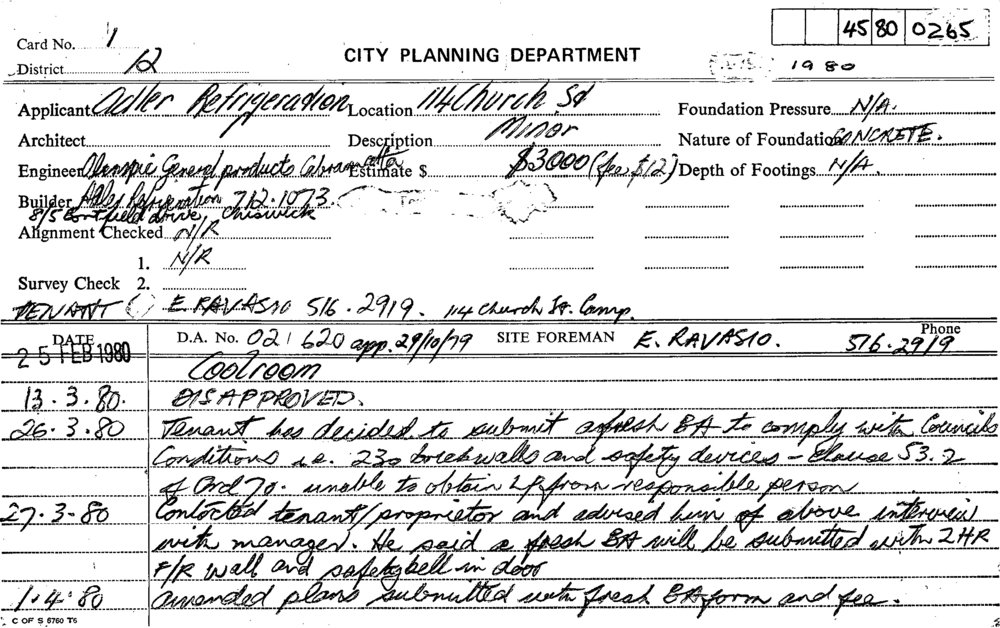 45 80 0265
Card No. 1
CITY PLANNING DEPARTMENT
District 12
1980
Applicant Adler Refrigeration Location 114 Church St Foundation Pressure N/A.
Architect Description Minor Nature of Foundation CONCRETE.
Engineer General products Cabramatta Estimate $ $3000 (fee $12) Depth of Footings N/A.
Builder Adler Refrigeration 712.1073.
8/5 drive, Chiswick
Alignment Checked N/R
1. N/R
Survey Check 2.
TENANT E. RAVASIO 516.2919. 114 Church St. Camp.
DATE D.A. No. 021620 app. 29/10/79 SITE FOREMAN E. RAVASIO. Phone 516.2919
25 FEB 1980 Coolroom
13.3.80. DISAPPROVED.
26.3.80 Tenant has decided to submit a fresh BA to comply with Councils
Conditions i.e. 230 brickwalls and safety devices - Clause 53.2
of Ord 70. unable to obtain from responsible person
27.3.80 Contacted tenant/proprietor and advised him of above interview
with manager. He said a fresh BA will be submitted with 2HR
F/R wall and safety bell in door
1.4.80 amended plans submitted with fresh BA form and fee.
C OF S 6760 T6